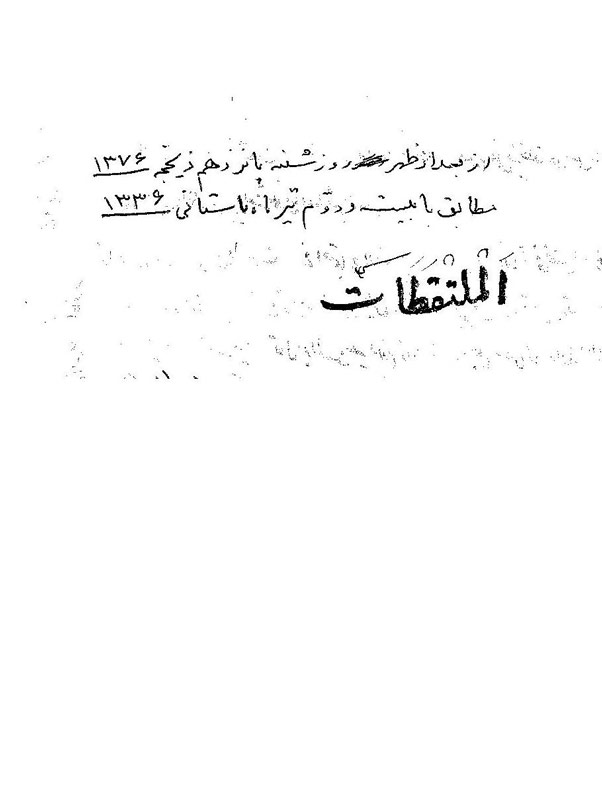 از بعد از ظهر روز شنبه پانزدهم ذیحجه ۱۳۷۶
مطابق با بیست و دوّم تیر ماه باستانی ۱۳۳۶
المُلتقطات